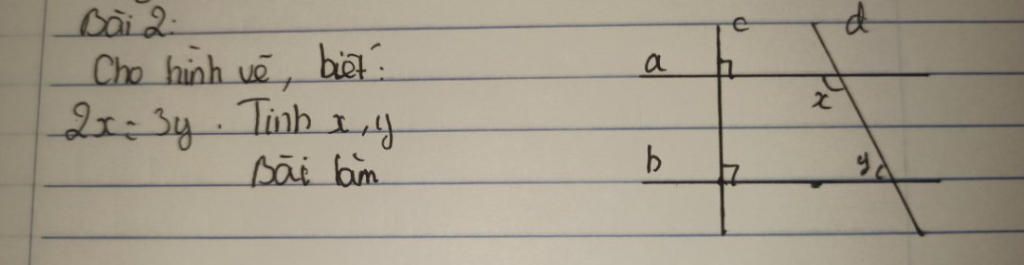 Bài 2:
Cho hình vẽ, biết:
2x = 3y. Tính x, y
Bài làm
c
d
a
x
b
y